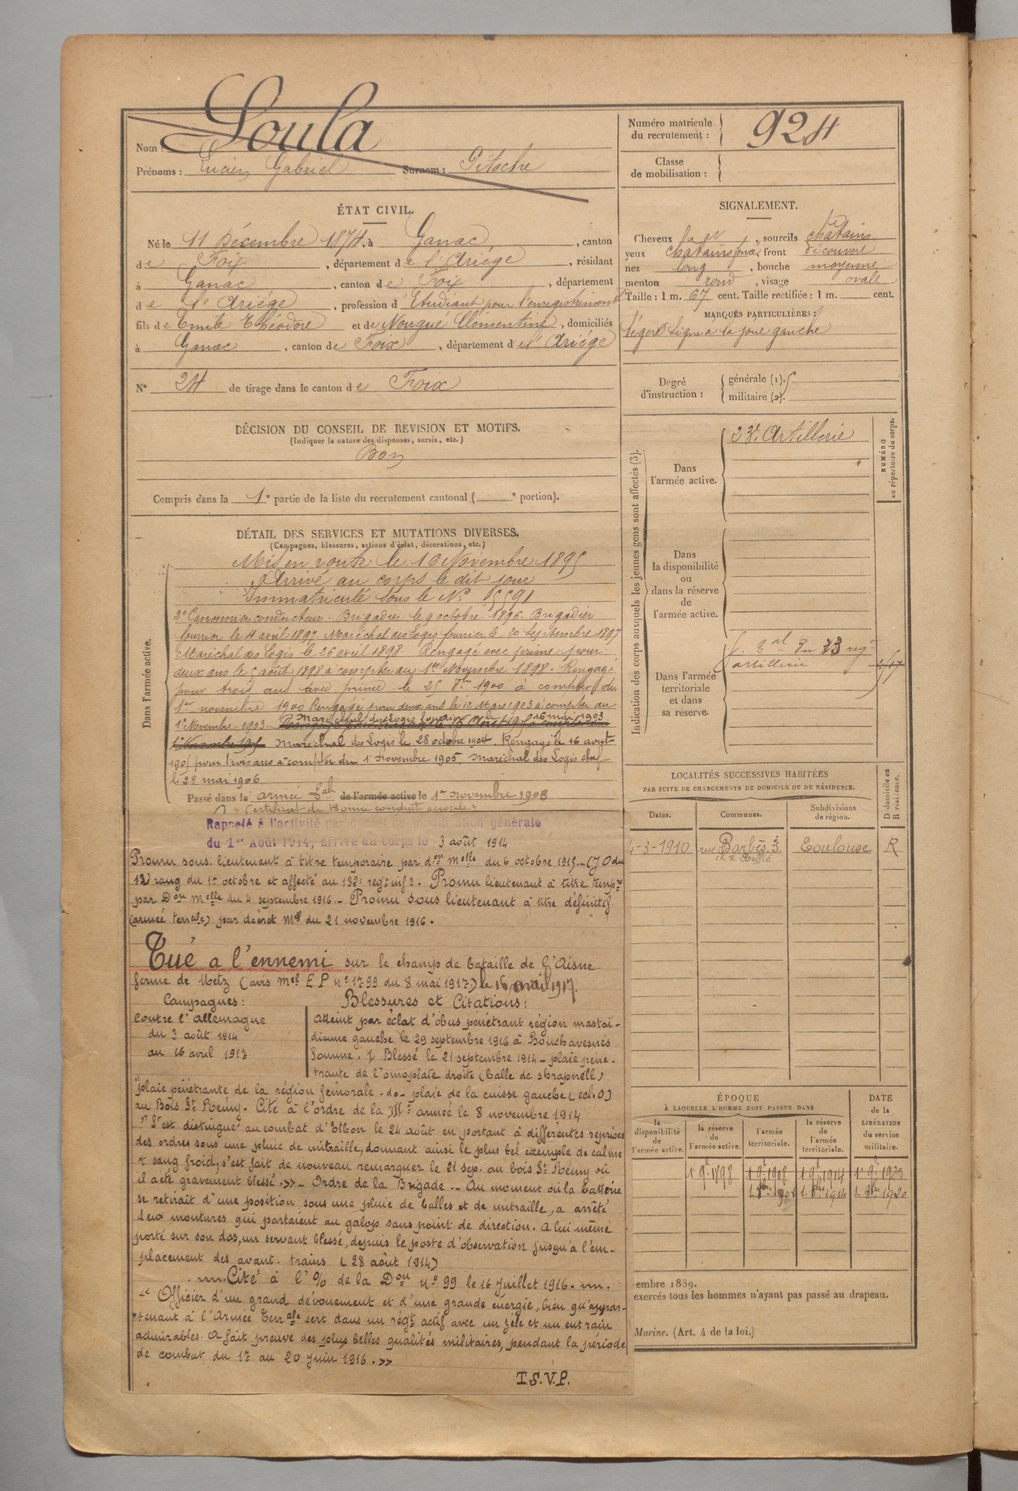 Nom : Soula
Prénoms : Lucien Gabriel Surnom : Pistache
Numéro matricule du recrutement : 924
Classe de mobilisation :
ÉTAT CIVIL.
Né le 11 Décembre 1874, à Ganac, canton
de Foix, département de l'Ariège, résidant
à Ganac, canton de Foix, département
de l'Ariège, profession d'Etudiant pour l'enregistrement
fils de Emile Théodore et de Nougué Clémentine, domiciliés
à Ganac, canton de Foix, département de l'Ariège
N° 24 de tirage dans le canton de Foix
DÉCISION DU CONSEIL DE REVISION ET MOTIFS.
(Indiquer la nature des dispenses, sursis, etc.)
Bon
Compris dans la 1e partie de la liste du recrutement cantonal ( e portion).
DÉTAIL DES SERVICES ET MUTATIONS DIVERSES.
(Campagnes, blessures, actions d'éclat, décorations, etc.)
Dans l'armée active.
Mis en route le 16 Novembre 1895
Arrivé au corps le dit jour
Immatriculé sous le N°
2e Canonnier conducteur. Brigadier le 9 octobre 1896. Brigadier
fourrier le 4 avril 1897. Maréchal des logis fourrier le 20 septembre 1897
Maréchal des Logis le 26 avril 1898. Rengagé avec prime pour
deux ans le 5 août 1898 à compter du 1er Novembre 1898. Rengagé
pour trois ans avec prime le 25 8bre 1900 à compter du
1er novembre 1900 Rengagé pour deux ans le 12 Mars 1903 à compter du
1er Novembre 1903. Maréchal des Logis fourrier 16 mai 1903
Maréchal des Logis le 28 octobre 1904. Rengagé le 16 août
1905 pour trois ans à compter du 1er Novembre 1905 Maréchal des Logis chef
le 28 mai 1906
Passé dans la armée tale de l'armée active le 1er novembre 1908
"Certificat de Bonne conduite accordé"
Rappelé à l'activité générale
du 1er Août 1914, arrivé au corps le 3 août 1914
Promu sous-lieutenant à titre temporaire par don mlle du 6 octobre 1915 - (J.O du
12) rang du 1er octobre et affecté au régt infie. Promu lieutenant à titre tempre
par Don mlle du 4 septembre 1916 - Promu sous lieutenant à titre définitif
(armée terrale) par décret Mel du 21 novembre 1916.
Tué a l'ennemi sur le champ de bataille de l'Aisne
ferme de Metz (avis mel E P n° 1799 du 8 mai 1917) le 16 avril 1917.
Campagnes :
Contre l'allemagne
du 3 août 1914
au 16 avril 1917
Blessures et Citations :
atteint par éclat d'obus pénétrant région mastoi-
dienne gauche le 29 septembre 1916 à Bouchavesnes
Somme. / Blessé le 21 septembre 1914 - plaie péné-
trante de l'omoplate droite (balle de shrapnell)
plaie pénétrante de la région fémorale - do - plaie de la cuisse gauche (éclat)
au Bois St Rémy. Cité à l'ordre de la IIIe armée le 8 novembre 1914
"S'est distingué au combat d'Ethon le 24 août en portant à différentes reprises
des ordres sous une pluie de mitraille, donnant ainsi le plus bel exemple de calme
et sang froid, s'est fait de nouveau remarquer le 21 sep. au bois St Rémy où
il a été gravement blessé." - Ordre de la Brigade - Au moment où la batterie
se retirait d'une position sous une pluie de balles et de mitraille, a arrêté
deux montures qui partaient au galop sans point de direction. A lui-même
porté sur son dos, un servant blessé, depuis le poste d'observation jusqu'à l'em-
placement des avant-trains (28 août 1914)
Cité à l'% de la Don n° 99 le 16 juillet 1916.
"Officier d'un grand dévouement et d'une grande énergie, bien qu'appar-
tenant à l'Armée Terrale sert dans un régt actif avec un zèle et un entrain
admirables. A fait preuve des plus belles qualités militaires, pendant la période
de combat du 17 au 20 juin 1916."
T.S.V.P.
SIGNALEMENT.
Cheveux , sourcils châtains
yeux châtains foncé, front découvert
nez long, bouche moyenne
menton rond, visage ovale
Taille : 1 m. 67 cent. Taille rectifiée : 1 m. cent.
MARQUES PARTICULIÈRES :
léger signe à la joue gauche
Degré d'instruction : générale (1).
militaire (2).
Indication des corps auxquels les jeunes gens sont affectés (3).
NUMÉRO au répertoire du corps.
Dans l'armée active. 23e Artillerie
Dans la disponibilité ou dans la réserve de l'armée active.
Dans l'armée territoriale et dans sa réserve.
du 23 regt
artillerie
LOCALITÉS SUCCESSIVES HABITÉES
PAR SUITE DE CHANGEMENTS DE DOMICILE OU DE RÉSIDENCE.
Dates. Communes. Subdivisions de région. D domicile ou R résidence.
4-3-1910 rue Barbès 3 Toulouse R
ÉPOQUE
À LAQUELLE L'HOMME DOIT PASSER DANS
DATE de la LIBÉRATION du service militaire.
la disponibilité de l'armée active. la réserve de l'armée active. l'armée territoriale. la réserve de l'armée territoriale.
1 9e 1898 1 9e 1908 1 9e 1914 1 9e 1920
1. 8bre 1908 1. 8bre 1914 1. 8bre 1920
embre 1889.
exercés tous les hommes n'ayant pas passé au drapeau.
Marine. (Art. 4 de la loi.)